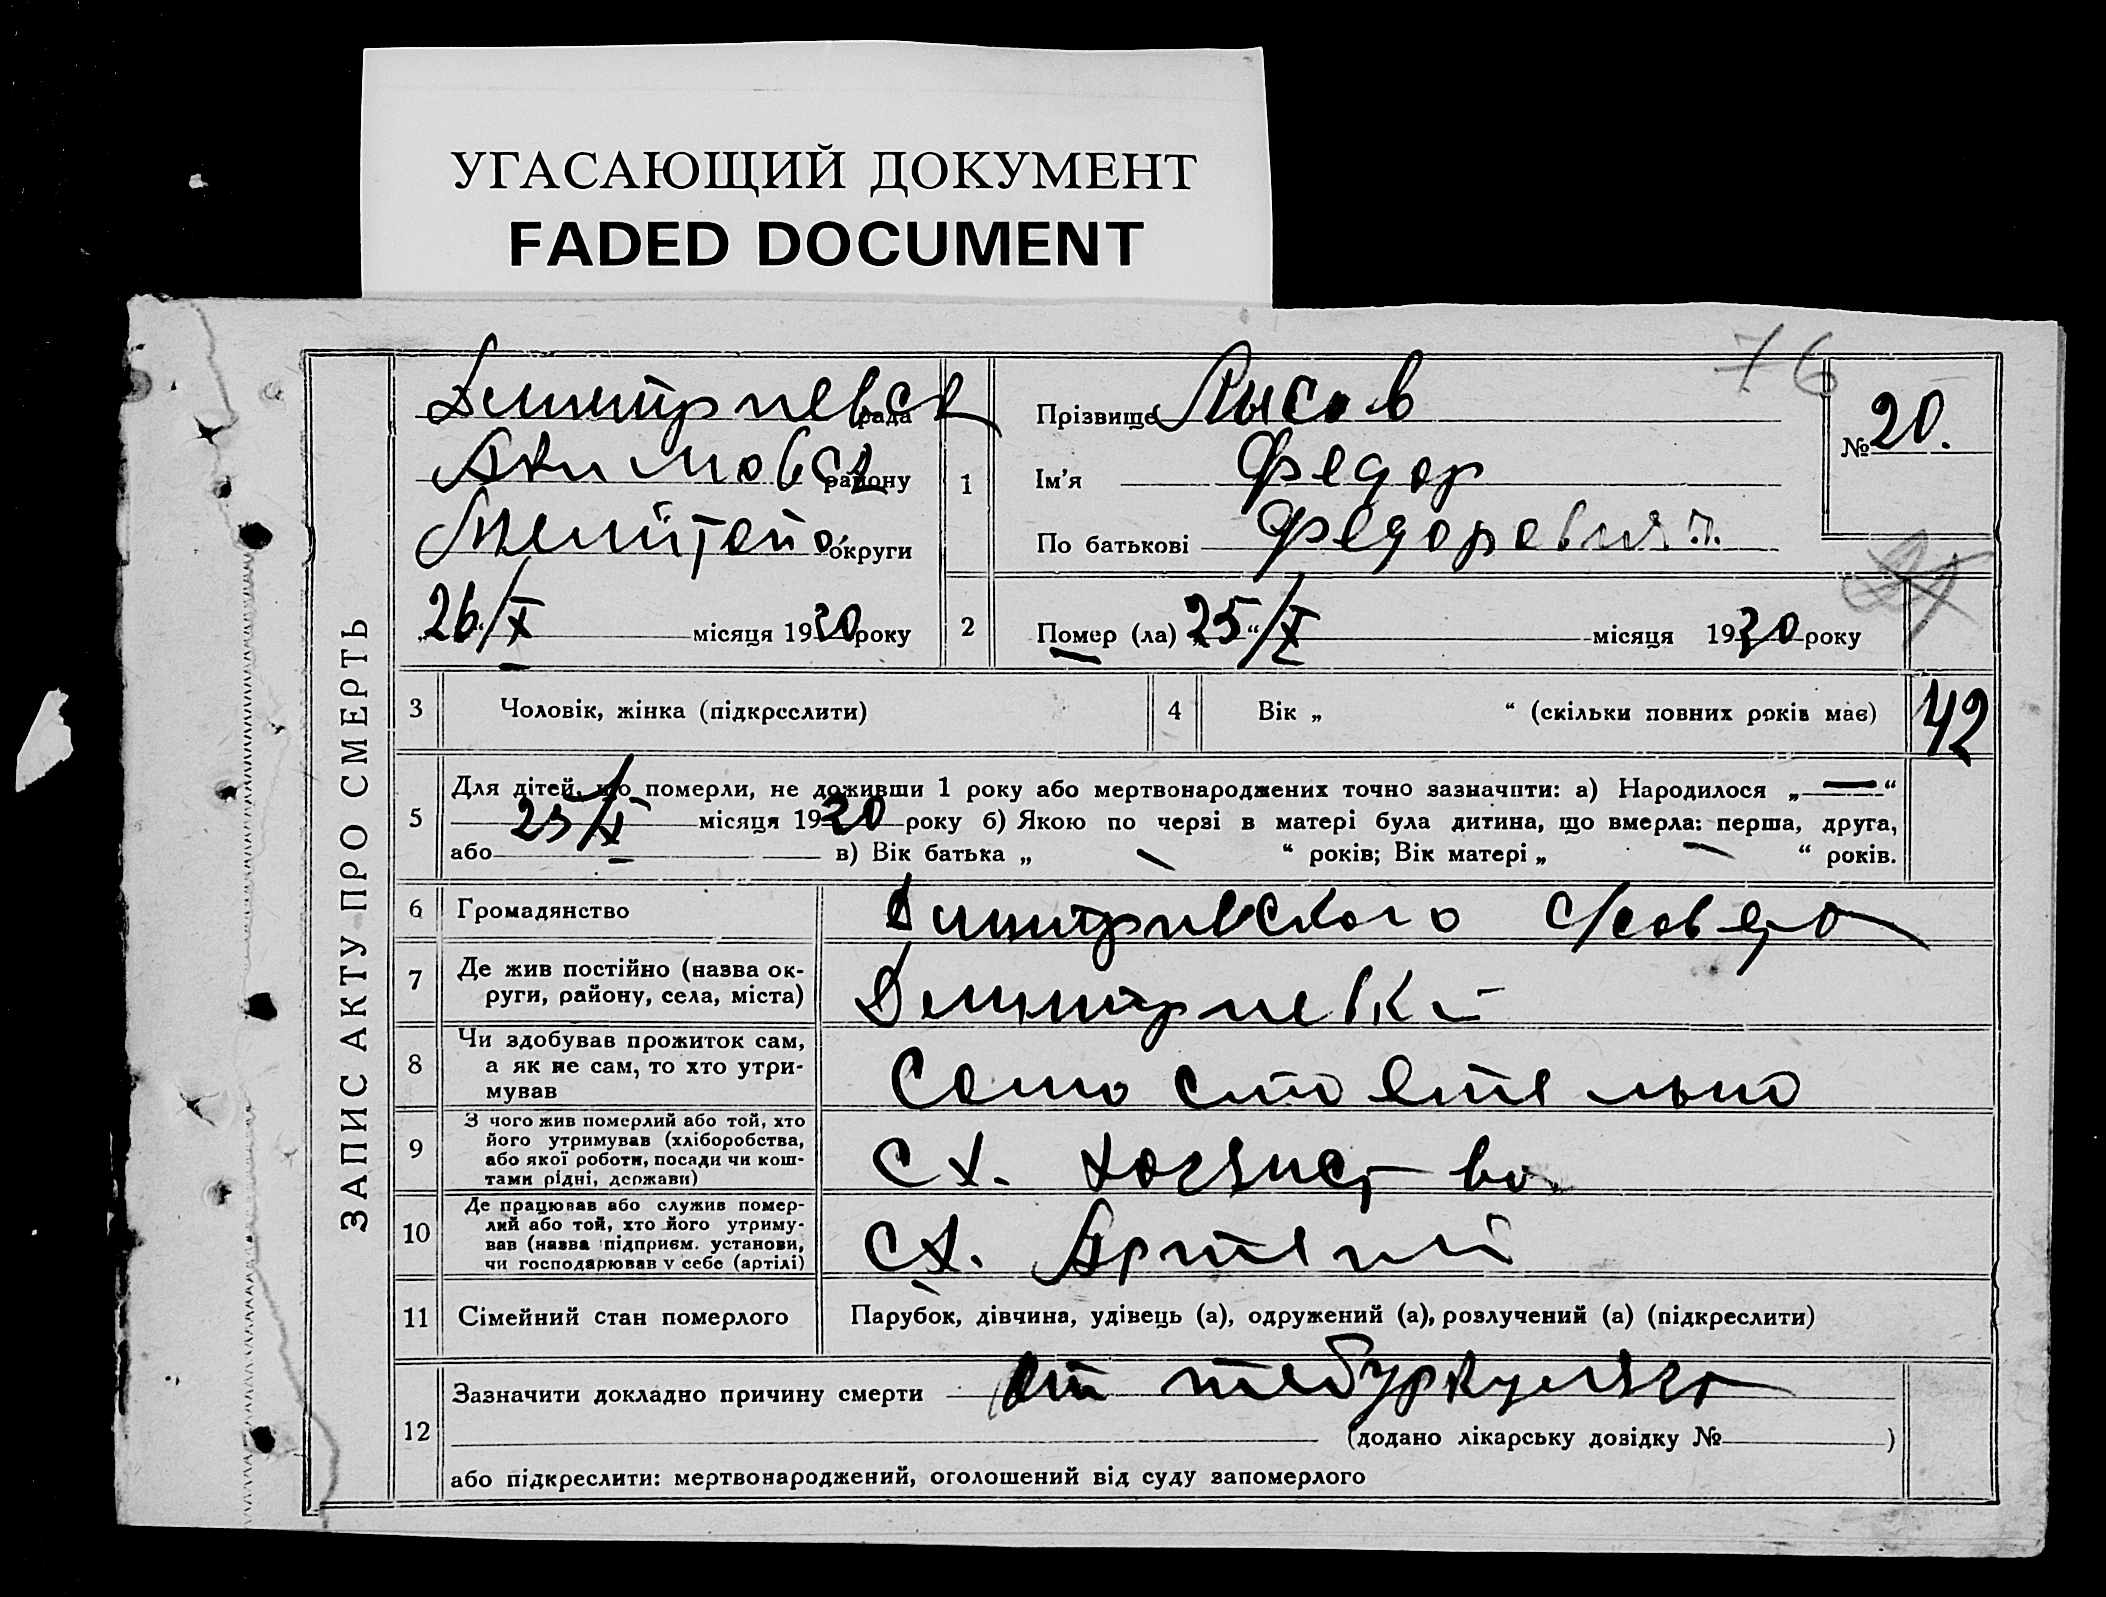 УГАСАЮЩИЙ ДОКУМЕНТ
FADED DOCUMENT
76
ЗАПИС АКТУ ПРО СМЕРТЬ
Димитриевск рада
Акимовск району
Мелитопо округи
26/X місяця 1930 року
1
Прізвище Лысов
Ім'я Федор
По батькові Федорович
№ 20.
2
Помер (ла) „25“/X місяця 1930 року
3 Чоловік, жінка (підкреслити)
4 Вік „ “ (скільки повних років має) 42
5 Для дітей, що померли, не доживши 1 року або мертвонароджених точно зазначити: а) Народилося „—“
25/X місяця 1930 року б) Якою по черзі в матері була дитина, що вмерла: перша, друга,
або — в) Вік батька „ “ років; Вік матері „ “ років.
6 Громадянство Димитривского с/совета
7 Де жив постійно (назва ок-
руги, району, села, міста) Димитриевки
8 Чи здобував прожиток сам,
а як не сам, то хто утри-
мував Самостоятельно
9 З чого жив померлий або той, хто
його утримував (хліборобства,
або якої роботи, посади чи кош-
тами рідні, держави) сх. хозяйство
10 Де працював або служив помер-
лий або той, хто його утриму-
вав (назва підприєм. установи,
чи господарював у себе (артілі) сх. Артели
11 Сімейний стан померлого Парубок, дівчина, удівець (а), одружений (а), розлучений (а) (підкреслити)
12 Зазначити докладно причину смерти От тебуркулеза
(додано лікарську довідку № )
або підкреслити: мертвонароджений, оголошений від суду запомерлого